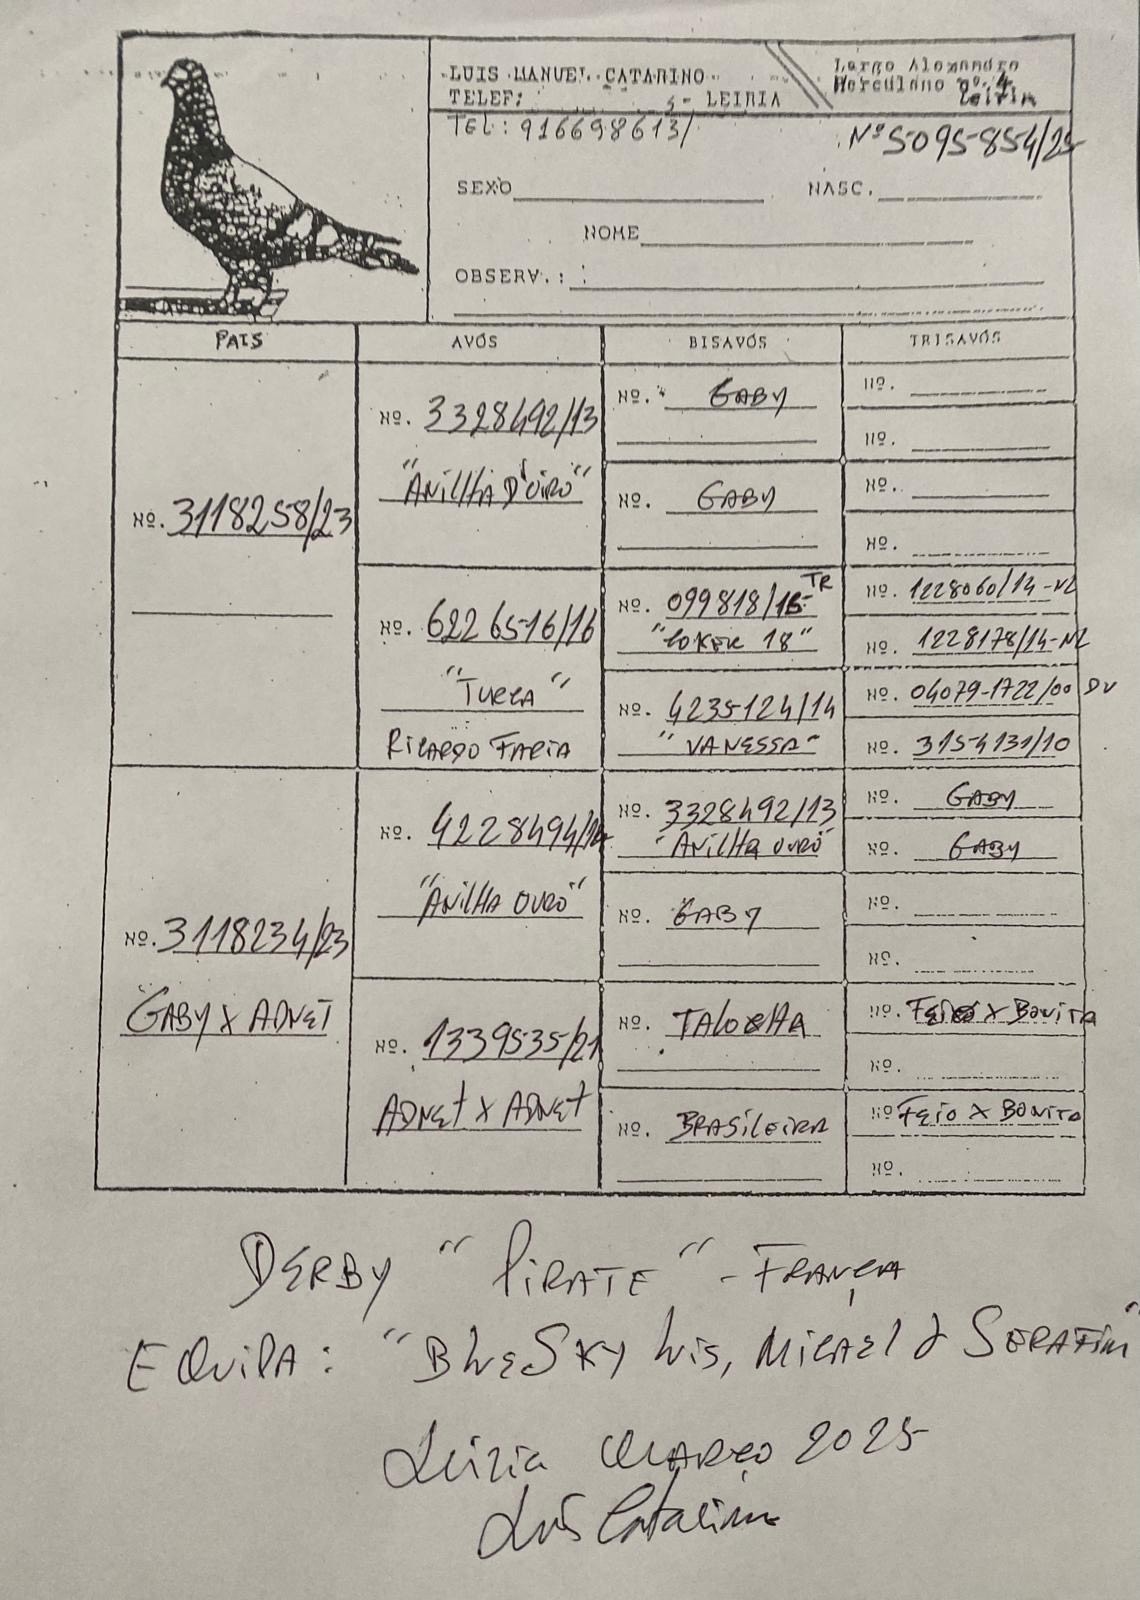 LUIS MANUEL CATARINO
TELEF: - LEIRIA
Largo Alexandre
Herculano nº. 4
Leiria
TEL: 916698613/
Nº 5095854/25
SEXO
NASC.
NOME
OBSERV.:
PAIS
AVÓS
BISAVÓS
TRISAVÓS
Nº. 3118258/23
Nº. 3328492/13
"ANILHA D'OIRO"
Nº. 6226516/16
"TURCA"
RICARDO FARIA
Nº. GABY
Nº. GABY
Nº. 099818/15-TR
"JOKER 18"
Nº. 4235124/14
"VANESSA"
Nº.
Nº.
Nº.
Nº.
Nº. 1228060/14-NL
Nº. 1228178/14-NL
Nº. 04079-1722/00 DV
Nº. 3154131/10
Nº. 3118234/23
GABY X ADNET
Nº. 4228494/14
"ANILHA OURO"
Nº. 1339535/21
ADNET X ADNET
Nº. 3328492/13
"ANILHA OURO"
Nº. GABY
Nº. TALOCHA
Nº. BRASILEIRA
Nº. GABY
Nº. GABY
Nº.
Nº.
Nº. FEIO X BONITA
Nº.
Nº FEIO X BONITA
Nº.
DERBY "PIRATE" - FRANÇA
EQUIPA: "BLUESKY LUIS, MICAEL & SERAFIM"
Leiria MARÇO 2025
Luís Catarino